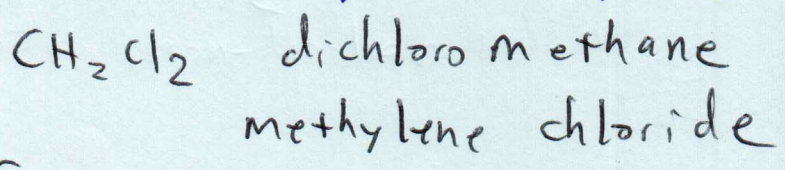 CH₂Cl₂ dichloromethane
methylene chloride